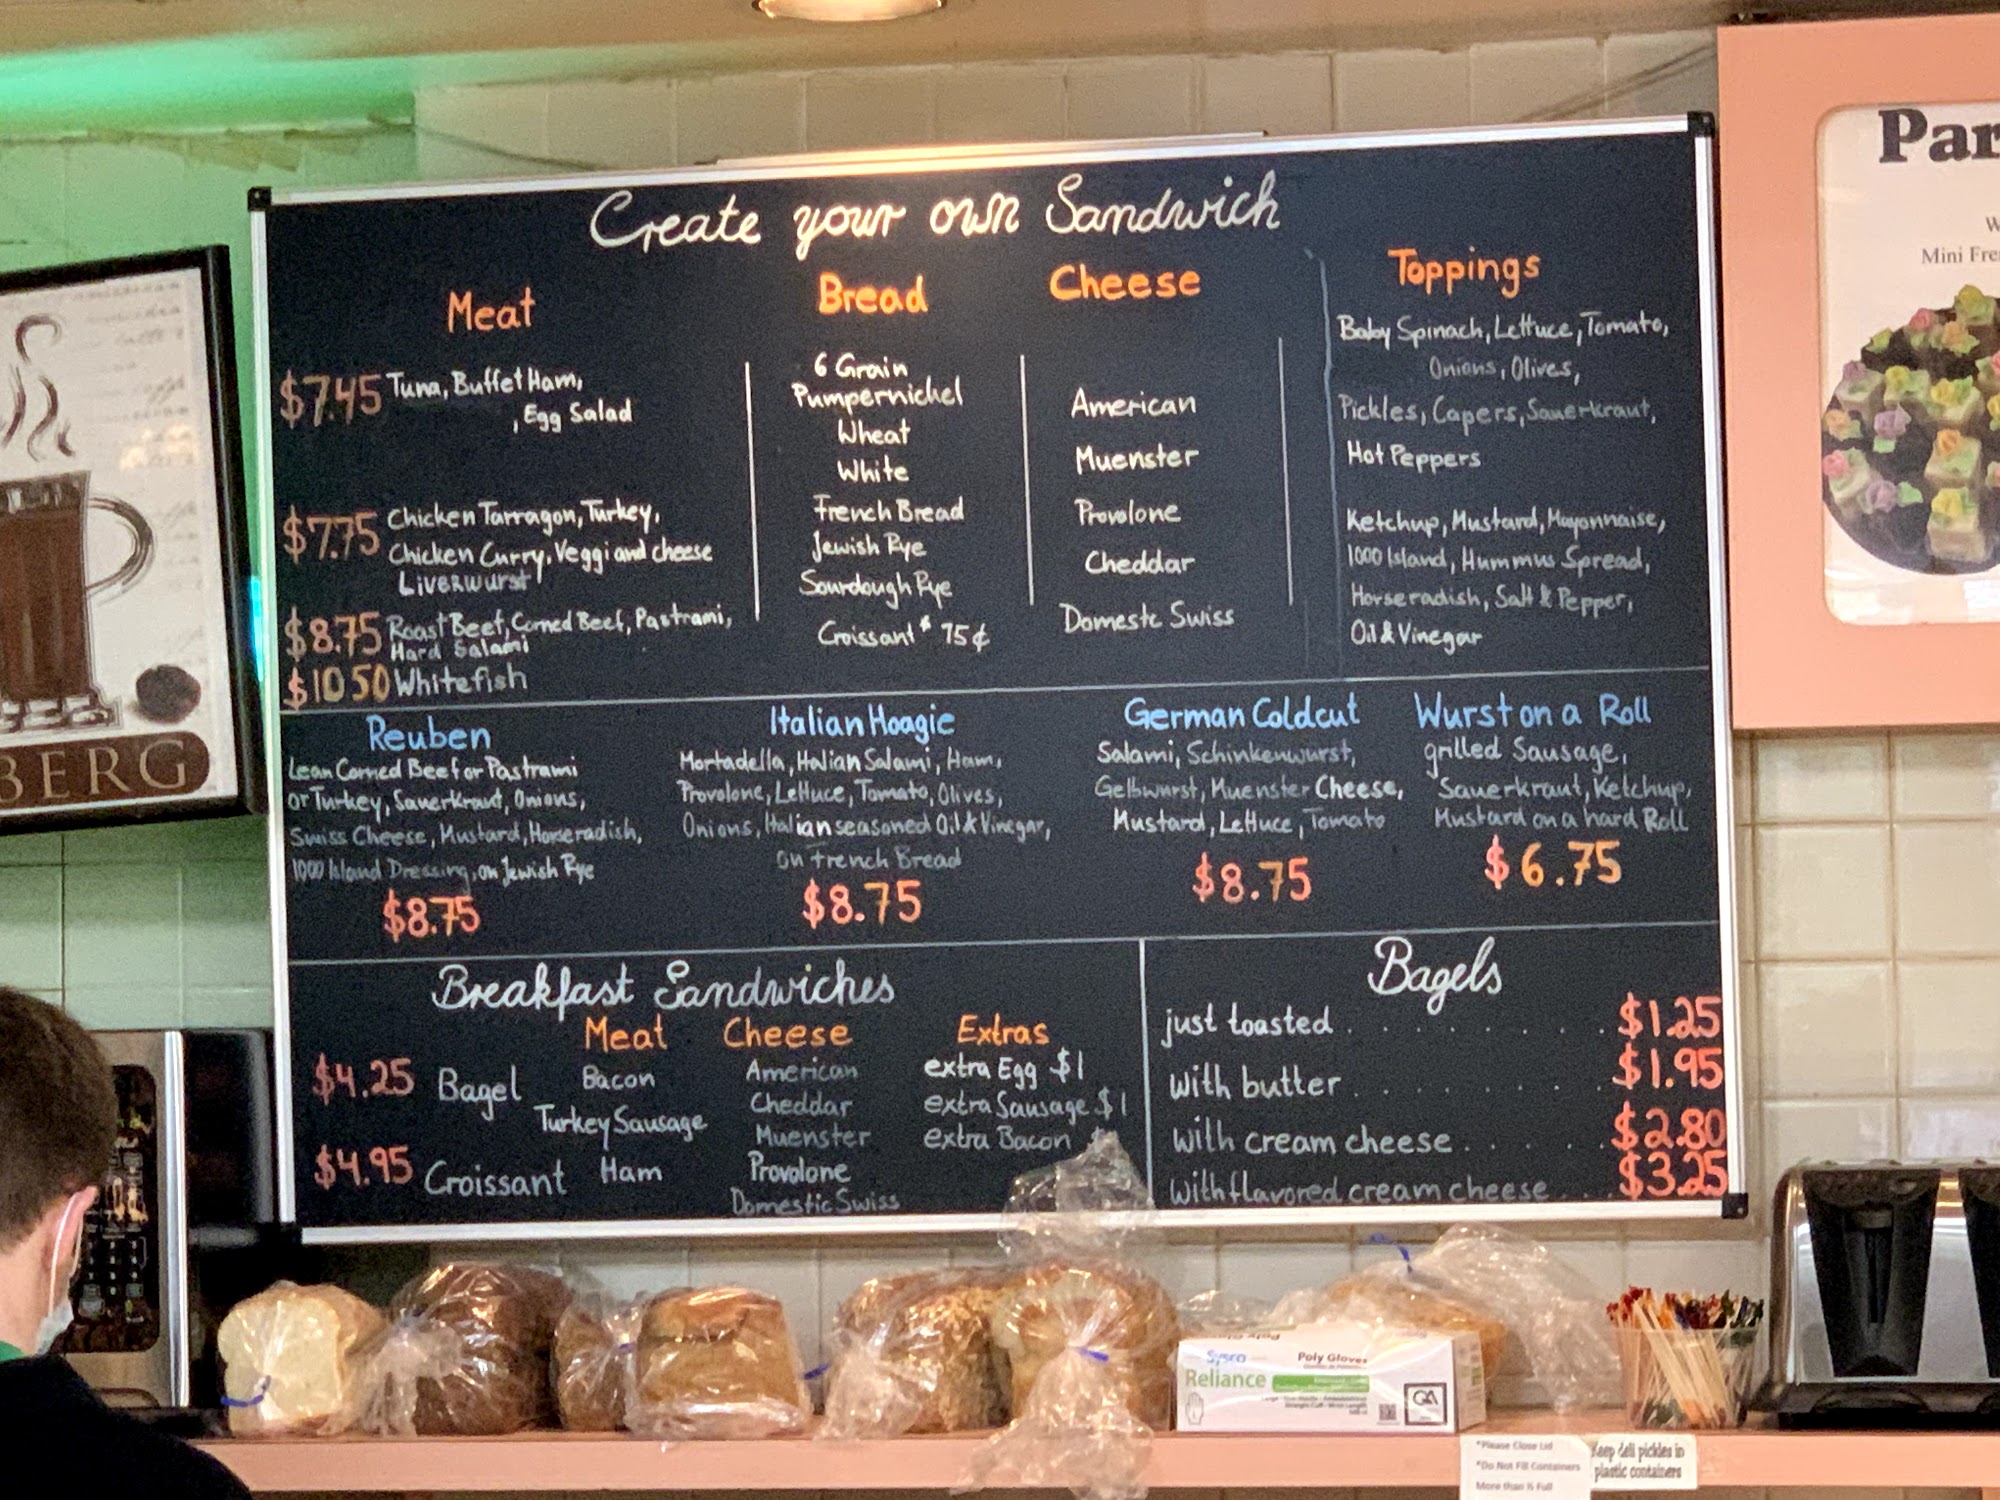 Create your own Sandwich
Meat
$7.45 Tuna, Buffet Ham,
, Egg Salad
$7.75 Chicken Tarragon, Turkey,
Chicken Curry, Veggi and cheese
Liverwurst
$8.75 Roast Beef, Corned Beef, Pastrami,
Hard Salami
$10 50 Whitefish
Bread
6 Grain
Pumpernickel
Wheat
White
French Bread
Jewish Rye
Sourdough Rye
Croissant $ 75¢
Cheese
American
Muenster
Provolone
Cheddar
Domestc Swiss
Toppings
Baby Spinach, Lettuce, Tomato,
Onions, Olives,
Pickles, Capers, Sauerkraut,
Hot Peppers
Ketchup, Mustard, Mayonnaise,
1000 Island, Hummus Spread,
Horseradish, Salt & Pepper,
Oil & Vinegar
Reuben
Lean Corned Beef or Pastrami
or Turkey, Sauerkraut, Onions,
Swiss Cheese, Mustard, Horseradish,
1000 Island Dressing, on Jewish Rye
$8.75
Italian Hoagie
Mortadella, Italian Salami, Ham,
Provolone, Lettuce, Tomato, Olives,
Onions, Italian seasoned Oil & Vinegar,
on French Bread
$8.75
German Coldcut
Salami, Schinkenwurst,
Gelbwurst, Muenster Cheese,
Mustard, Lettuce, Tomato
$8.75
Wurst on a Roll
grilled Sausage,
Sauerkraut, Ketchup,
Mustard on a hard Roll
$6.75
Breakfast Sandwiches
$4.25 Bagel
$4.95 Croissant
Meat
Bacon
Turkey Sausage
Ham
Cheese
American
Cheddar
Muenster
Provolone
Domestic Swiss
Extras
extra Egg $1
extra Sausage $1
extra Bacon
Bagels
just toasted . . . . . . . . $1.25
with butter . . . . . . . . $1.95
with cream cheese . . . . . $2.80
with flavored cream cheese . . . $3.25
BERG
Par
W
Mini Fre
Sysco
Reliance
Poly Gloves
QA
*Please Close Lid
*Do Not Fill Containers
More than ½ Full
Keep deli pickles in
plastic containers